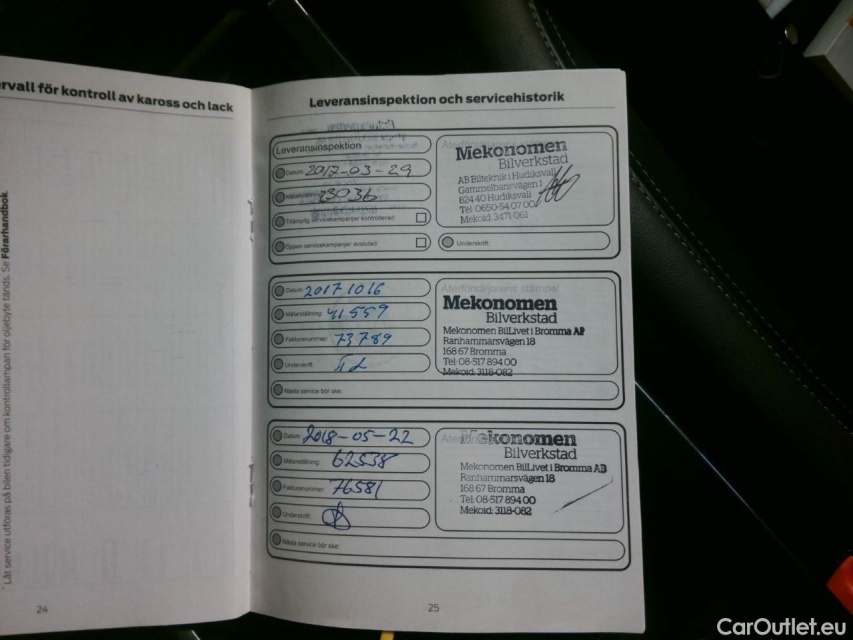 ervall för kontroll av kaross och lack
* Låt service utföras på bilen tidigare om kontrollampan för oljebyte tänds. Se Förarhandbok
24
Leveransinspektion och servicehistorik
Leveransinspektion
Datum: 2017-03-29
Mätarställning: 23036
Tillämplig servicekampanjer kontrollerad:
Öppen servicekampanjer avslutad:
Mekonomen
Bilverkstad
AB Bilteknik i Hudiksvall
Gammelbansvägen 1
824 40 Hudiksvall
Tel: 0650-54 07 00
Mekoid: 3471-061
Underskrift:
Datum: 2017 10 16
Mätarställning: 41 559
Fakturanummer: 73789
Underskrift:
Nästa service bör ske:
Återförsäljarens stämpel
Mekonomen
Bilverkstad
Mekonomen BilLivet i Bromma AB
Ranhammarsvägen 18
168 67 Bromma
Tel: 08-517 894 00
Mekoid: 3118-082
Datum: 2018-05-22
Mätarställning: 62538
Fakturanummer: 76581
Underskrift:
Nästa service bör ske:
Mekonomen
Bilverkstad
Mekonomen BilLivet i Bromma AB
Ranhammarsvägen 18
168 67 Bromma
Tel: 08-517 894 00
Mekoid: 3118-082
25
CarOutlet.eu